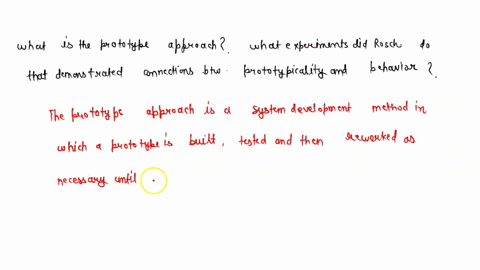 what is the prototype approach? what experiments did Rosch do
that demonstrated connections btw. prototypicality and behavior?
The prototype approach is a system development method in
which a prototype is built, tested and then reworked as
necessary until